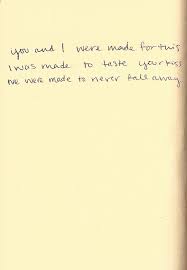 you and I were made for this
I was made to taste your kiss
we were made to never fall away